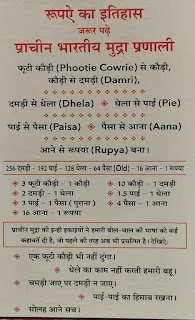 रूपऐ का इतिहास
जरूर पढ़े
प्राचीन भारतीय मुद्रा प्रणाली
फूटी कौड़ी (Phootie Cowrie) से कौड़ी,
कौड़ी से दमड़ी (Damri),
दमड़ी से धेला (Dhela) • धेला से पाई (Pie)
पाई से पैसा (Paisa) • पैसा से आना (Aana)
आने से रूपया (Rupya) बना।
256 दमड़ी - 192 पाई - 128 धेला - 64 पैसा (Old) - 16 आना - 1 रूपया
• 3 फूटी कौड़ी - 1 कौड़ी • 10 कौड़ी - 1 दमड़ी
• 2 दमड़ी - 1 धेला • 1.5 पाई - 1 धेला
• 3 पाई - 1 पैसा (पुराना) • 4 पैसा - 1 आना
• 16 आना - 1 रूपया
प्राचीन मुद्रा की इन्हीं इकाइयों ने हमारी बोल-चाल की भाषा को कई
कहावतें दी है, जो पहले की तरह अब भी प्रचलित है। देखिए:
• एक फूटी कौड़ी भी नहीं दूंगा।
• धेले का काम नहीं करती हमारी बहू।
• चमड़ी जाए पर दमड़ी न जाए।
• पाई-पाई का हिसाब रखना।
• सोलह आने सच।